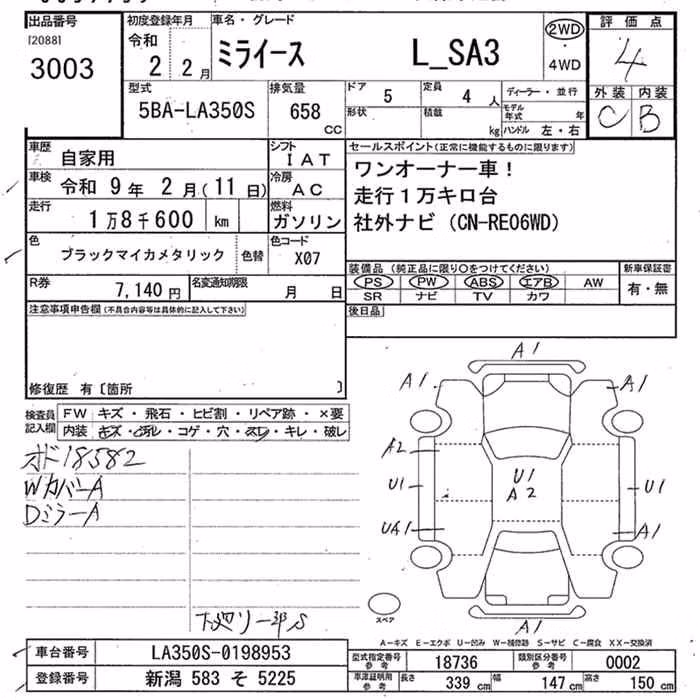 出品番号
[2088]
3003
初度登録年月
令和
2 2月
車名・グレード
ミライース L_SA3
2WD
・
4WD
評価点
4
外装 内装
C B
型式
5BA-LA350S
排気量
658
CC
ドア
5
定員
4 人
形状
積載
kg
ディーラー・並行
モデル年式 年
ハンドル 左・右
車歴
自家用
シフト
IAT
車検
令和 9年 2月(11日)
冷房
AC
走行
1万8千600 km
燃料
ガソリン
色
ブラックマイカメタリック
色替
色コード
X07
R券
7,140円
名変通知期限
月 日
セールスポイント(正常に機能するものに限ります)
ワンオーナー車!
走行1万キロ台
社外ナビ(CN-RE06WD)
装備品(純正品に限り○をつけてください)
PS PW ABS エアB AW
SR ナビ TV カワ
新車保証書
有・無
後日品
注意事項申告欄(不具合内容等は具体的に記入して下さい)
修復歴 有〔箇所 〕
検査員
記入欄
FW キズ・飛石・ヒビ割・リペア跡・×要
内装 キズ・汚れ・コゲ・穴・スレ・キレ・破レ
オド18582
WカバーA
DミラーA
下廻り一部S
A1
A1
A1
A2
U1
UA1
U1
A2
U1
A1
A1
スペア
A-キズ E-エクボ U-凹み W-補修跡 S-サビ C-腐食 XX-交換済
車台番号
LA350S-0198953
登録番号
新潟 583 そ 5225
型式指定番号
参考
18736
類別区分番号
参考
0002
車庫証明用
参考
長さ 339cm 幅 147cm 高さ 150cm